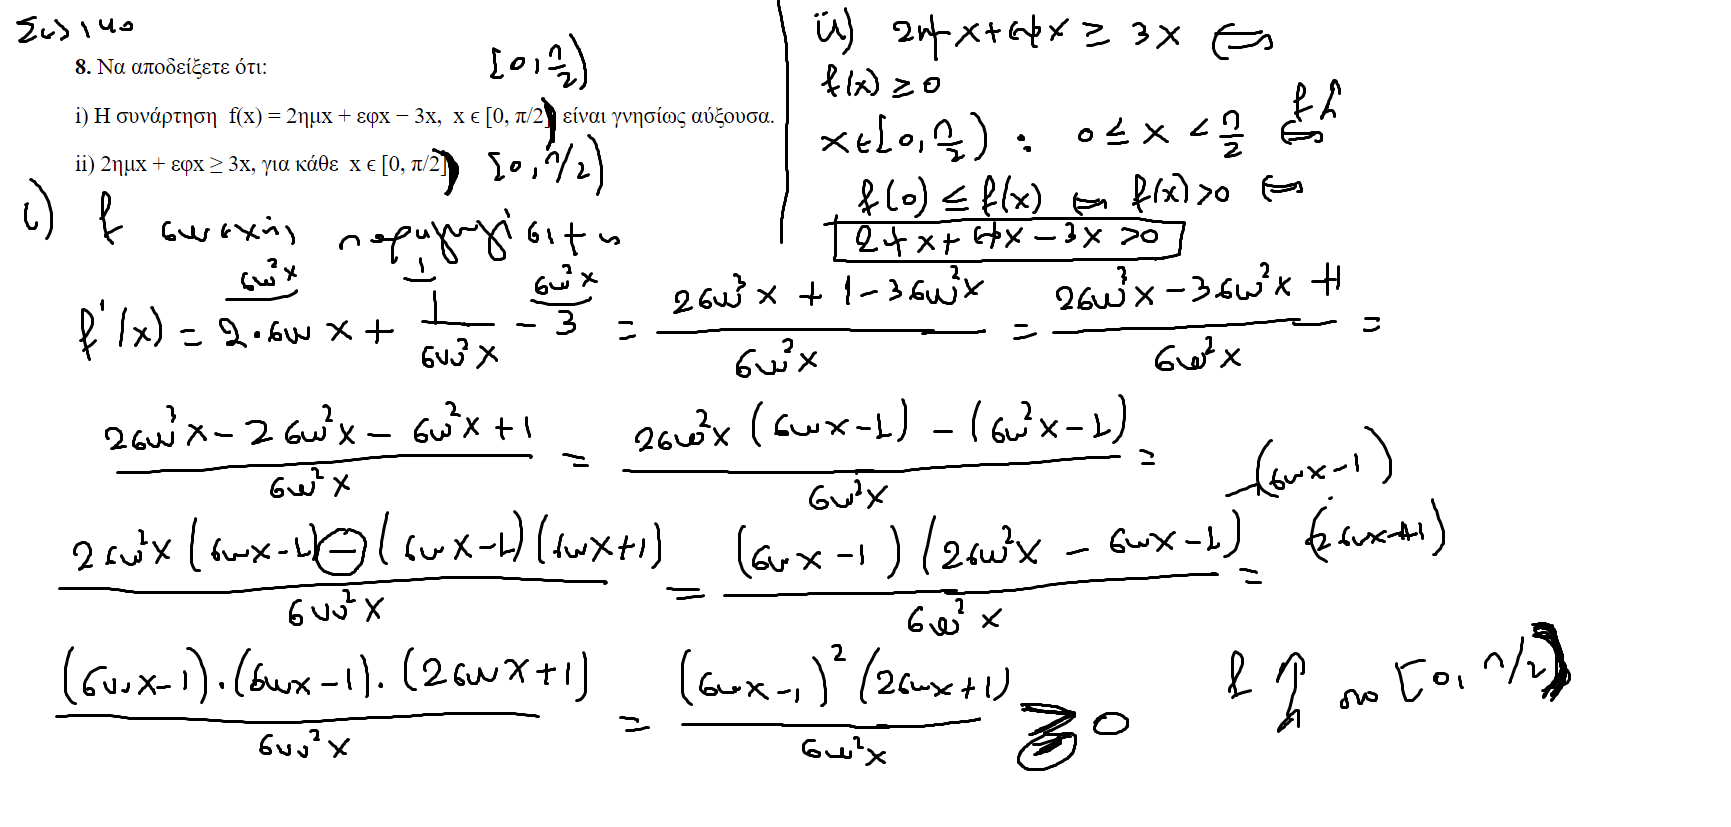 Σχόλιο
8. Να αποδείξετε ότι: [0, π/2)
i) Η συνάρτηση f(x) = 2ημx + εφx − 3x, x ϵ [0, π/2) είναι γνησίως αύξουσα.
ii) 2ημx + εφx ≥ 3x, για κάθε x ϵ [0, π/2) [0, π/2)
i) f συνεχής παραγωγίσιμη
f'(x) = 2·συνx + 1/συν²x − 3 = (2συν³x + 1 − 3συν²x)/συν²x = (2συν³x − 3συν²x + 1)/συν²x =
(2συν³x − 2συν²x − συν²x + 1)/συν²x = (2συν²x (συνx − 1) − (συν²x − 1))/συν²x =
(2συν²x (συνx − 1) − (συνx − 1)(συνx + 1))/συν²x = (συνx − 1)(2συν²x − συνx − 1)/συν²x =
(συνx − 1)
(2συνx + 1)
(συνx − 1)·(συνx − 1)·(2συνx + 1)/συν²x = (συνx − 1)²(2συνx + 1)/συν²x ≥ 0
f ↑ στο [0, π/2)
ii) 2ημx + εφx ≥ 3x ⇔
f(x) ≥ 0
x ϵ [0, π/2) : 0 ≤ x < π/2 f↑ ⇔
f(0) ≤ f(x) ⇔ f(x) > 0 ⇔
2ημx + εφx − 3x > 0